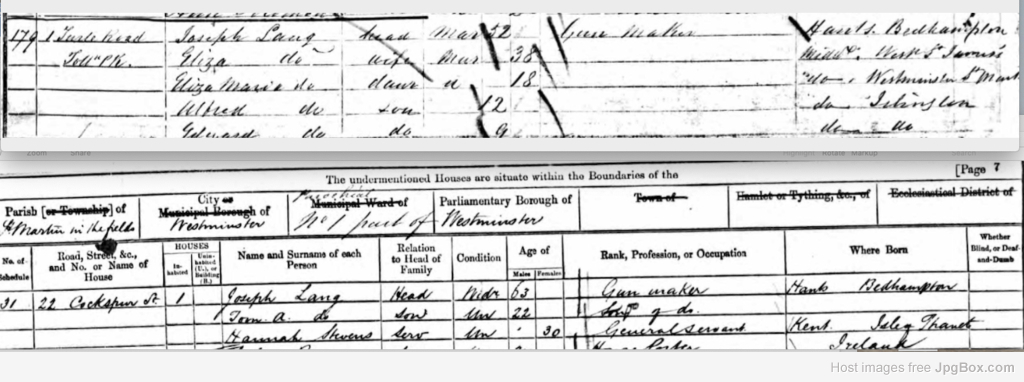 179 1 Joseph Lang head Mar 52 Gun Maker Hants. Bedhampton
Toll Pk. Eliza do wife Mar 38 Midd. West St
Eliza Maria do daur u 18 do Westminster St
Alfred do son 12 do Islington
Edward do do 9 do do
Zoom Share Highlight Rotate Markup
The undermentioned Houses are situate within the Boundaries of the [Page 7
Parish [or Township] of City or Municipal Borough of Municipal Ward of Parliamentary Borough of Town of Hamlet or Tything, &c., of Ecclesiastical District of
St Martin in the fields Westminster No 1 part of Westminster
No. of Schedule Road, Street, &c., and No. or Name of House HOUSES Inhabited Uninhabited (U.), or Building (B.) Name and Surname of each Person Relation to Head of Family Condition Age of Males Females Rank, Profession, or Occupation Where Born Whether Blind, or Deaf-and-Dumb
31 22 Cockspur St 1 Joseph Lang Head Widr 63 Gun maker Hants Bedhampton
Tom A. do Son Un 22 Son of do.
Hannah Stevens Serv Un 30 General Servant Kent. Isle Thanet
Porter Ireland
Host images free JpgBox.com